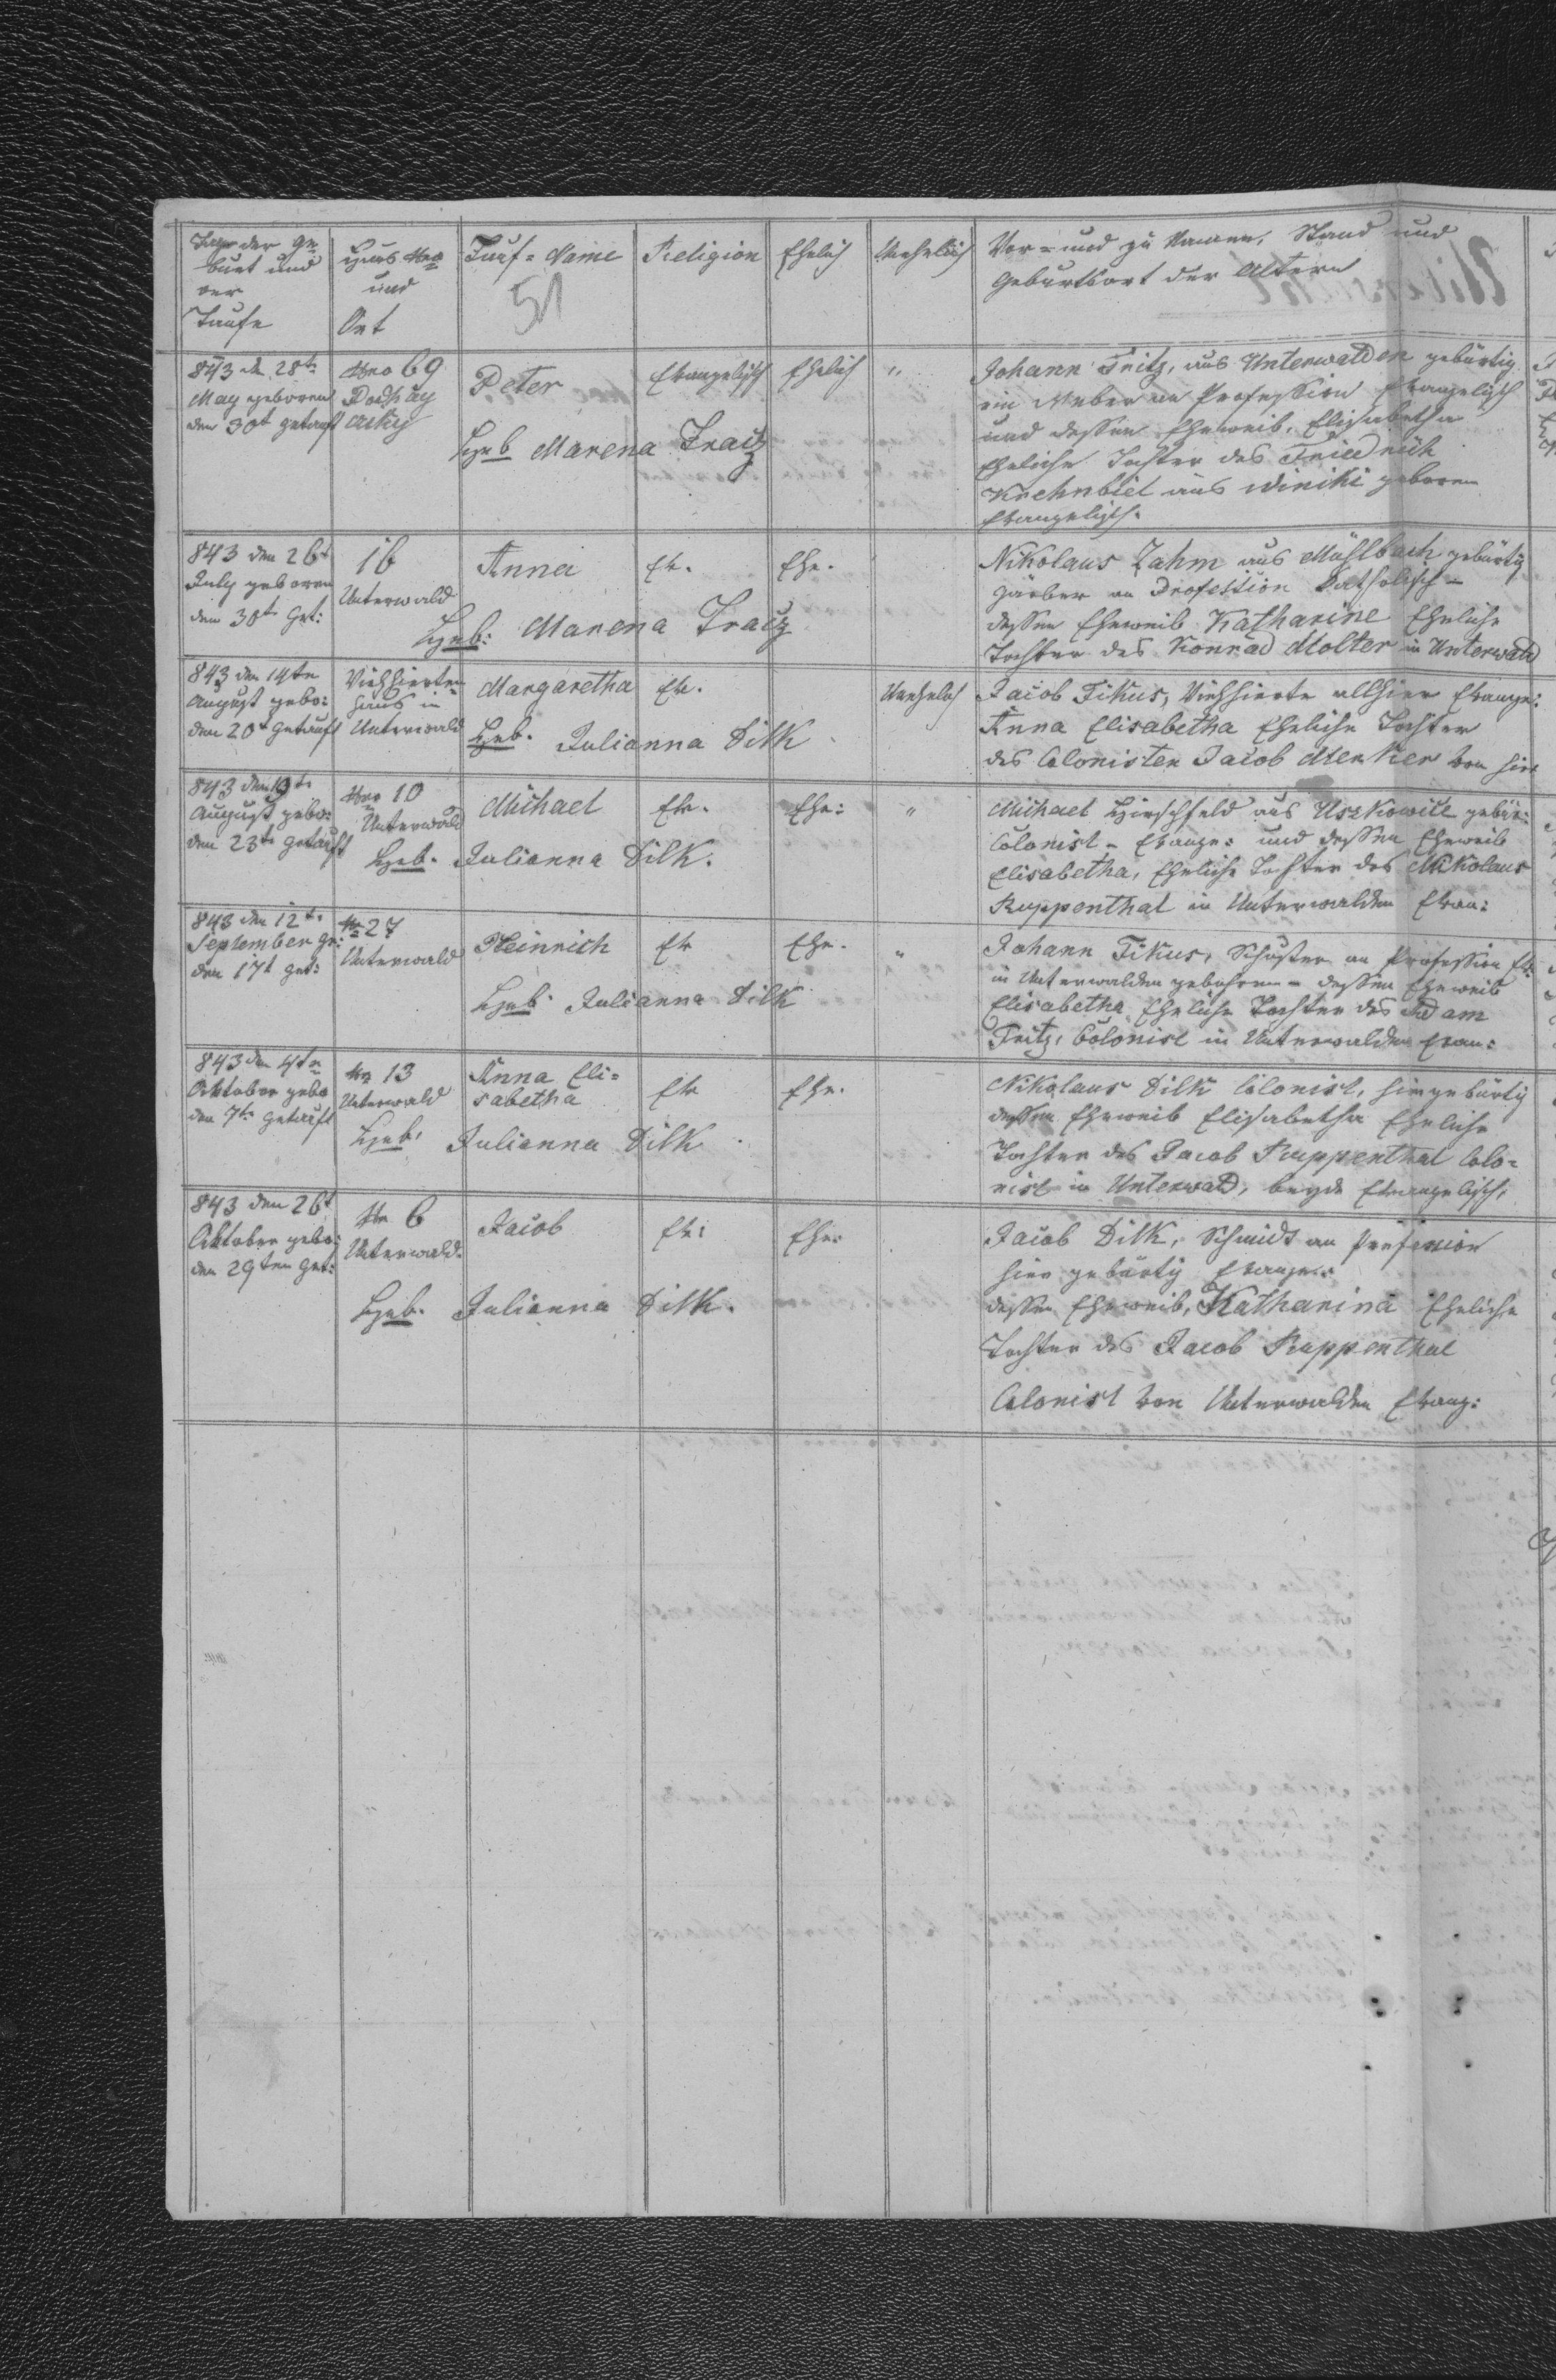 Tag der Ge-
burt und
der
Taufe
Haus Nro
und
Ort
Tauf-Name
51
Religion
Ehelich
Unehelich
Vor- und zu Namen, Stand und
Geburtsort der Altern
843 den 28t
May geboren
den 30t getauft
Nro 69
Peter
Evangelisch
Ehelich
"
Heb Marena Tracz
Johann Fritz, aus Unterwalden gebürtig
ein Weber an Profession Evangelisch
und dessen Eheweib, Elisabetha
Eheliche Tochter des Friedrich
Krehnbiel aus Winiki geboren
Evangelisch.
843 den 26t
July geboren
den 30t Get:
16
Unterwald
Anna
Ev.
Ehe.
Heb: Marena Tracz
Nikolaus Zahm aus Mühlbach gebürtig
Gärber an Profession Katholisch -
dessen Eheweib Katharine Eheliche
Tochter des Konrad Molter in Unterwald
843 den 14ten
August gebo:
den 20t Getauft
Viehhierten
haus in
Unterwald
Margaretha
Ev.
Unehelich
Heb. Julianna Dilk
Jacob Fikus, Viehhierte allhier Evange:
Anna Elisabetha Eheliche Tochter
des Colonisten Jacob Menker von hier
843 den 19t
August gebo:
den 23t getauft
Nro 10
Unterwald
Michael
Ev.
Ehe:
"
Heb. Julianna Dilk.
Michael Hirschfeld aus Uszkowice gebür:
Colonist - Evange: und dessen Eheweib
Elisabetha, Eheliche Tochter des Nikolaus
Ruppenthal in Unterwalden Evan:
843 den 12t
September ge:
den 17t get:
Nr 27
Unterwald
Heinrich
Ev
Ehe.
"
Heb. Julianna Dilk
Johann Fikus, Schuster an Profession Ev:
in Unterwalden gebohren - dessen Eheweib
Elisabetha Eheliche Tochter des Adam
Fritz, Colonist in Unterwalden Evan:
843 den 4ten
Oktober gebo
den 7t Getauft
Nr 13
Unterwald
Anna Eli-
sabetha
Ev
Ehe.
Heb. Julianna Dilk
Nikolaus Dilk Colonist, hier gebürtig
dessen Eheweib Elisabetha Eheliche
Tochter des Jacob Ruppenthal Colo-
nist in Unterwald, beyde Evangelisch.
843 den 26t
Oktober gebo:
den 29ten Get:
Nr 6
Unterwald.
Jacob
Ev:
Ehe:
Heb. Julianna Dilk.
Jacob Dilk, Schmidt an Profession
hier gebürtig Evange:
dessen Eheweib, Katharina Eheliche
Tochter des Jacob Ruppenthal
Colonist von Unterwalden Evang: